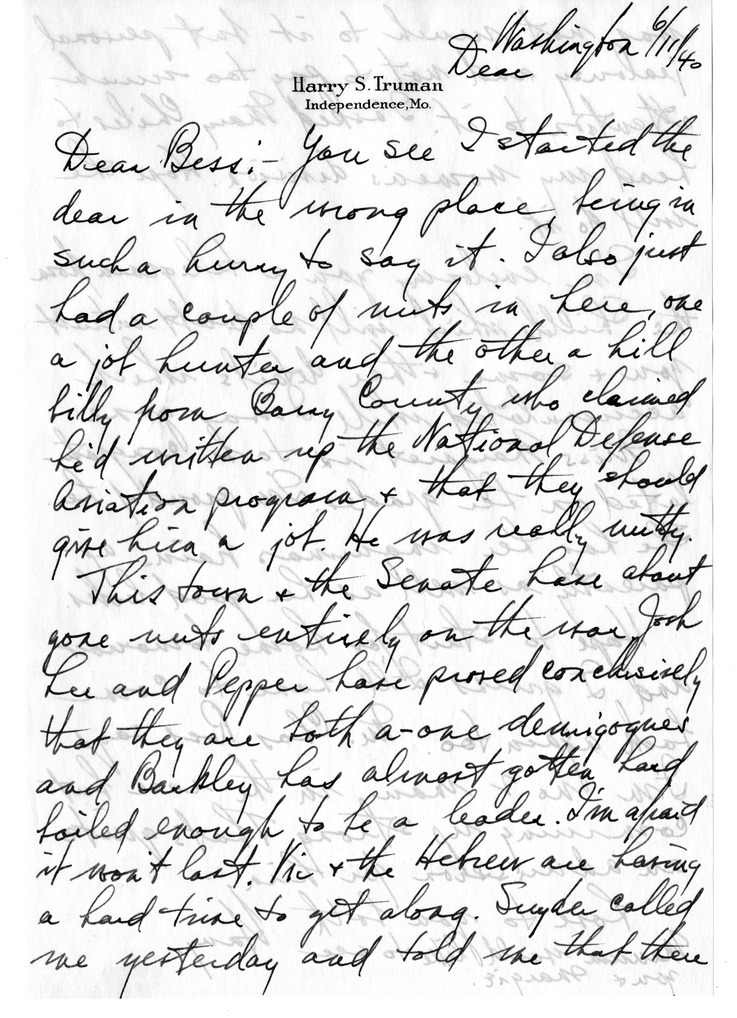 Washington 6/11/40
Dear
Harry S. Truman
Independence, Mo.
Dear Bess:- You see I started the
dear in the wrong place, being in
such a hurry to say it. I also just
had a couple of nuts in here, one
a job hunter and the other a hill
billy from Barry County who claimed
he'd written up the National Defense
Aviation program & that they should
give him a job. He was really nutty.
This town & the Senate have about
gone nuts entirely on the war. Josh
Lee and Pepper have proved conclusively
that they are both a-one demigogues
and Barkley has almost gotten hard
boiled enough to be a leader. I'm afraid
it won't last. Vic & the Hebrew are having
a hard time to get along. Snyder called
me yesterday and told me that there